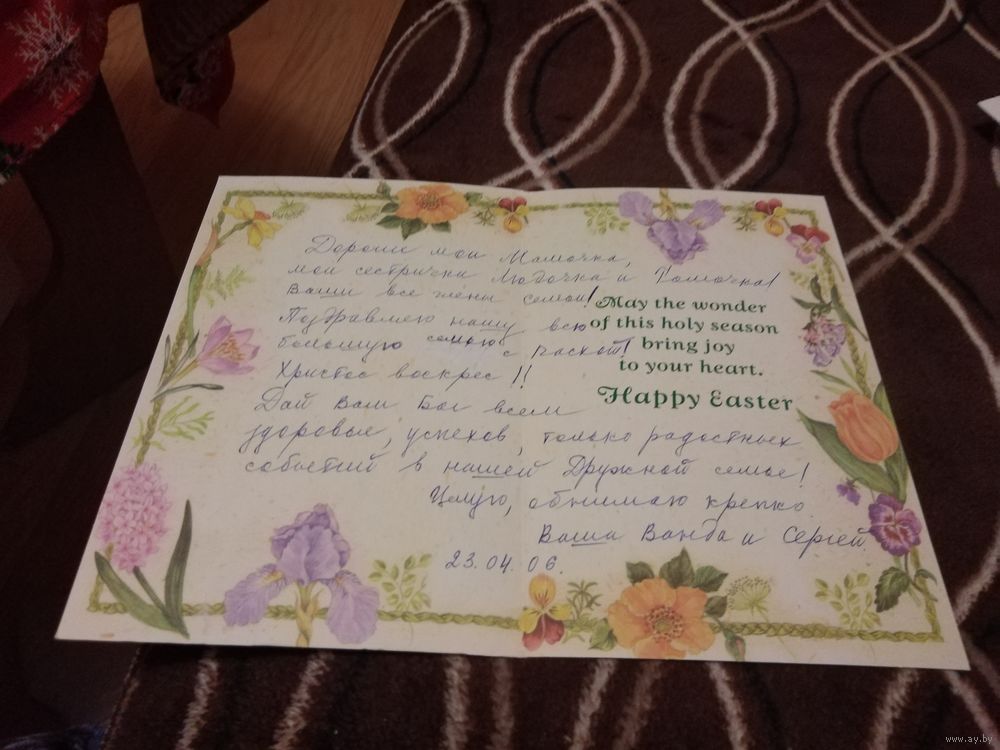 Дорогие мои Мамочка,
мои сестрички Людочка и Томочка!
Ваши все члены семьи!
Поздравляю нашу всю
большую семью с Пасхой!
Христос воскрес!!
Дай Вам Бог всем
здоровья, успехов, только радостных
событий в нашей Дружной семье!
Целую, обнимаю крепко
Ваша Ванда и Сергей
23.04.06.
May the wonder
of this holy season
bring joy
to your heart.
Happy Easter
www.ay.by